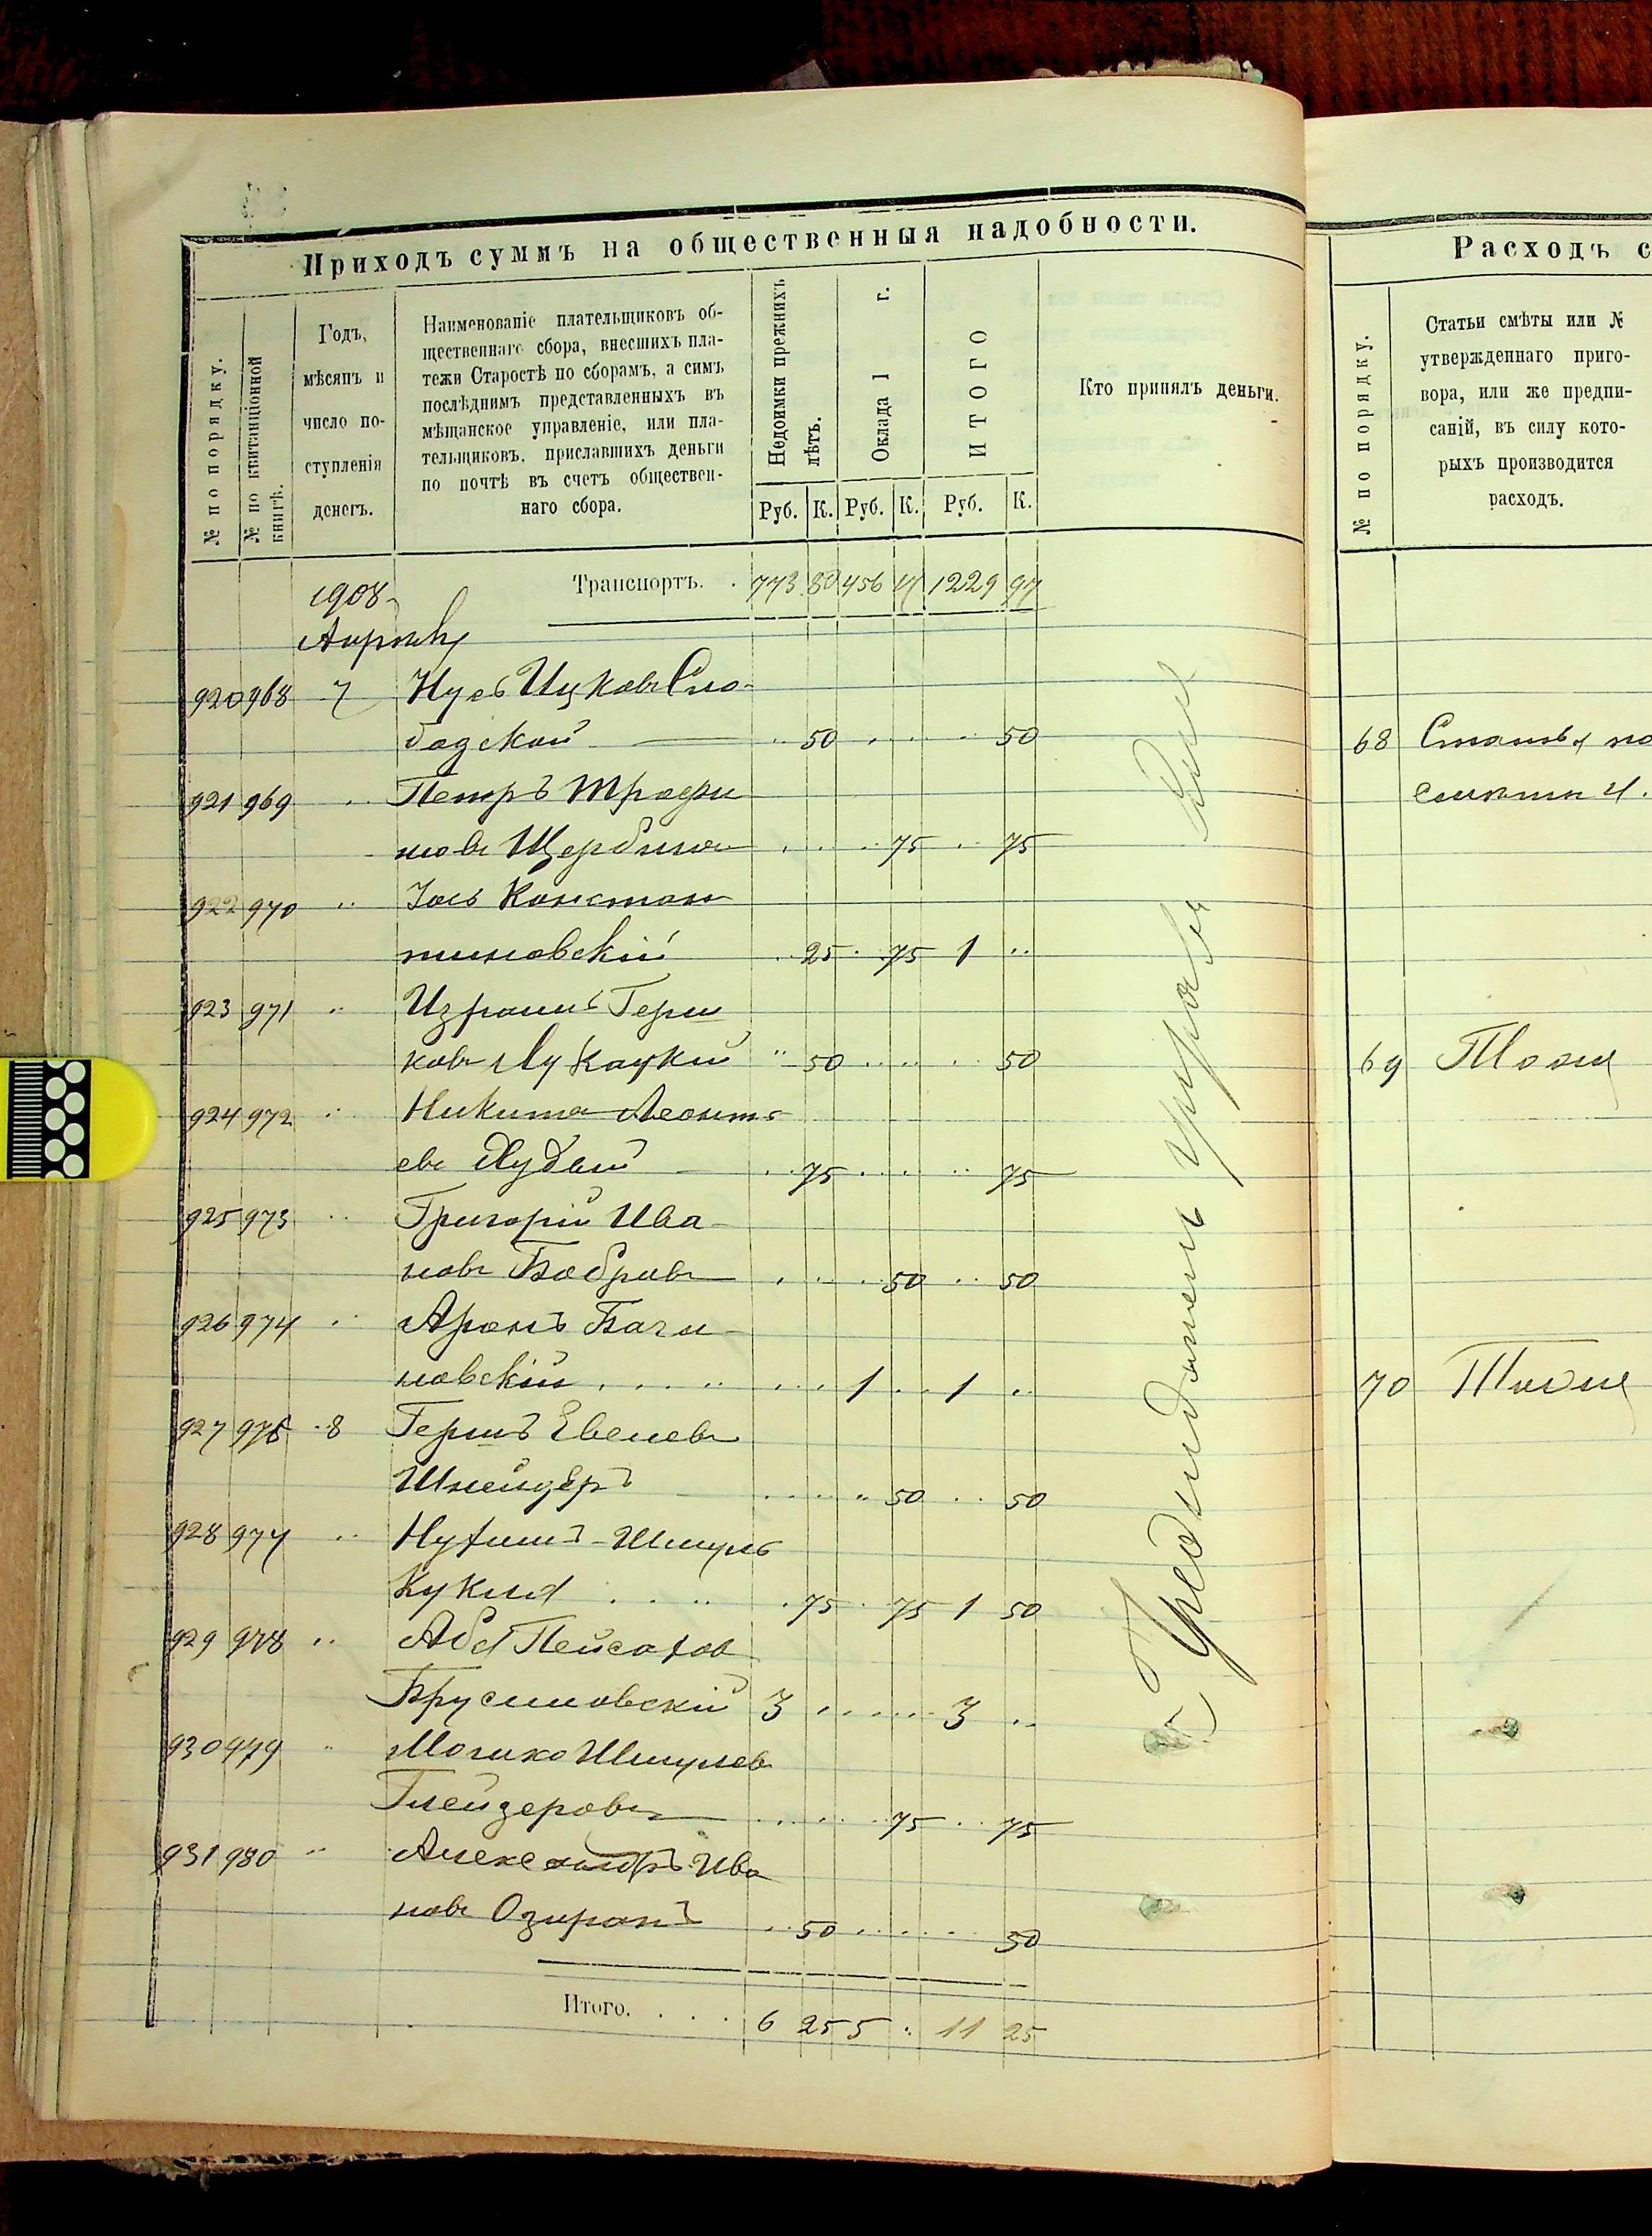 Приходъ суммъ на общественныя надобности.
№ по порядку.
№ по квитанціонной книгѣ.
Годъ,
мѣсяцъ и
число по-
ступленія
денегъ.
Наименованіе плательщиковъ об-
щественнаго сбора, внесшихъ пла-
тежи Старостѣ по сборамъ, а симъ
послѣднимъ представленныхъ въ
мѣщанское управленіе, или пла-
тельщиковъ, приславшихъ деньги
по почтѣ въ счетъ обществен-
наго сбора.
Недоимки прежнихъ
лѣтъ.
Оклада 1 г.
ИТОГО
Руб. К. Руб. К. Руб. К.
Кто принялъ деньги.
1908 Транспортъ. 773 80 456 17 1229 97
Апрѣль
920 968 7 Нусь Ицковъ Сло-
бодской 50 50
921 969 Петръ Трофи
мовъ Щербина 75 75
922 970 Іось Констан
тиновскій 25 75 1
923 971 Израиль Герш
ковъ Лукацкій 50 50
924 972 Никита Леонть
евъ Худый 75 75
925 973 Григорій Ива
новъ Бобровъ 50 50
926 974 Аронъ Баги
новскій 1 1
927 976 8 Гершъ Евелевъ
Шнейдеръ 50 50
928 977 Нухимъ-Шмуль
Кукля 75 75 1 50
929 978 Аба Пейсахов
Брусиловскій 3 3
930 979 Мошко Шмулев
Глейзеровъ 75 75
931 980 Александръ Ива
новъ Озиранъ 50 50
Итого. 6 25 5 11 25
Предсѣдатель управы
Расходъ с
№ по порядку.
Статьи смѣты или №
утвержденнаго приго-
вора, или же предпи-
саній, въ силу кото-
рыхъ производится
расходъ.
68 Статья по
69 Тоже
70 Тоже